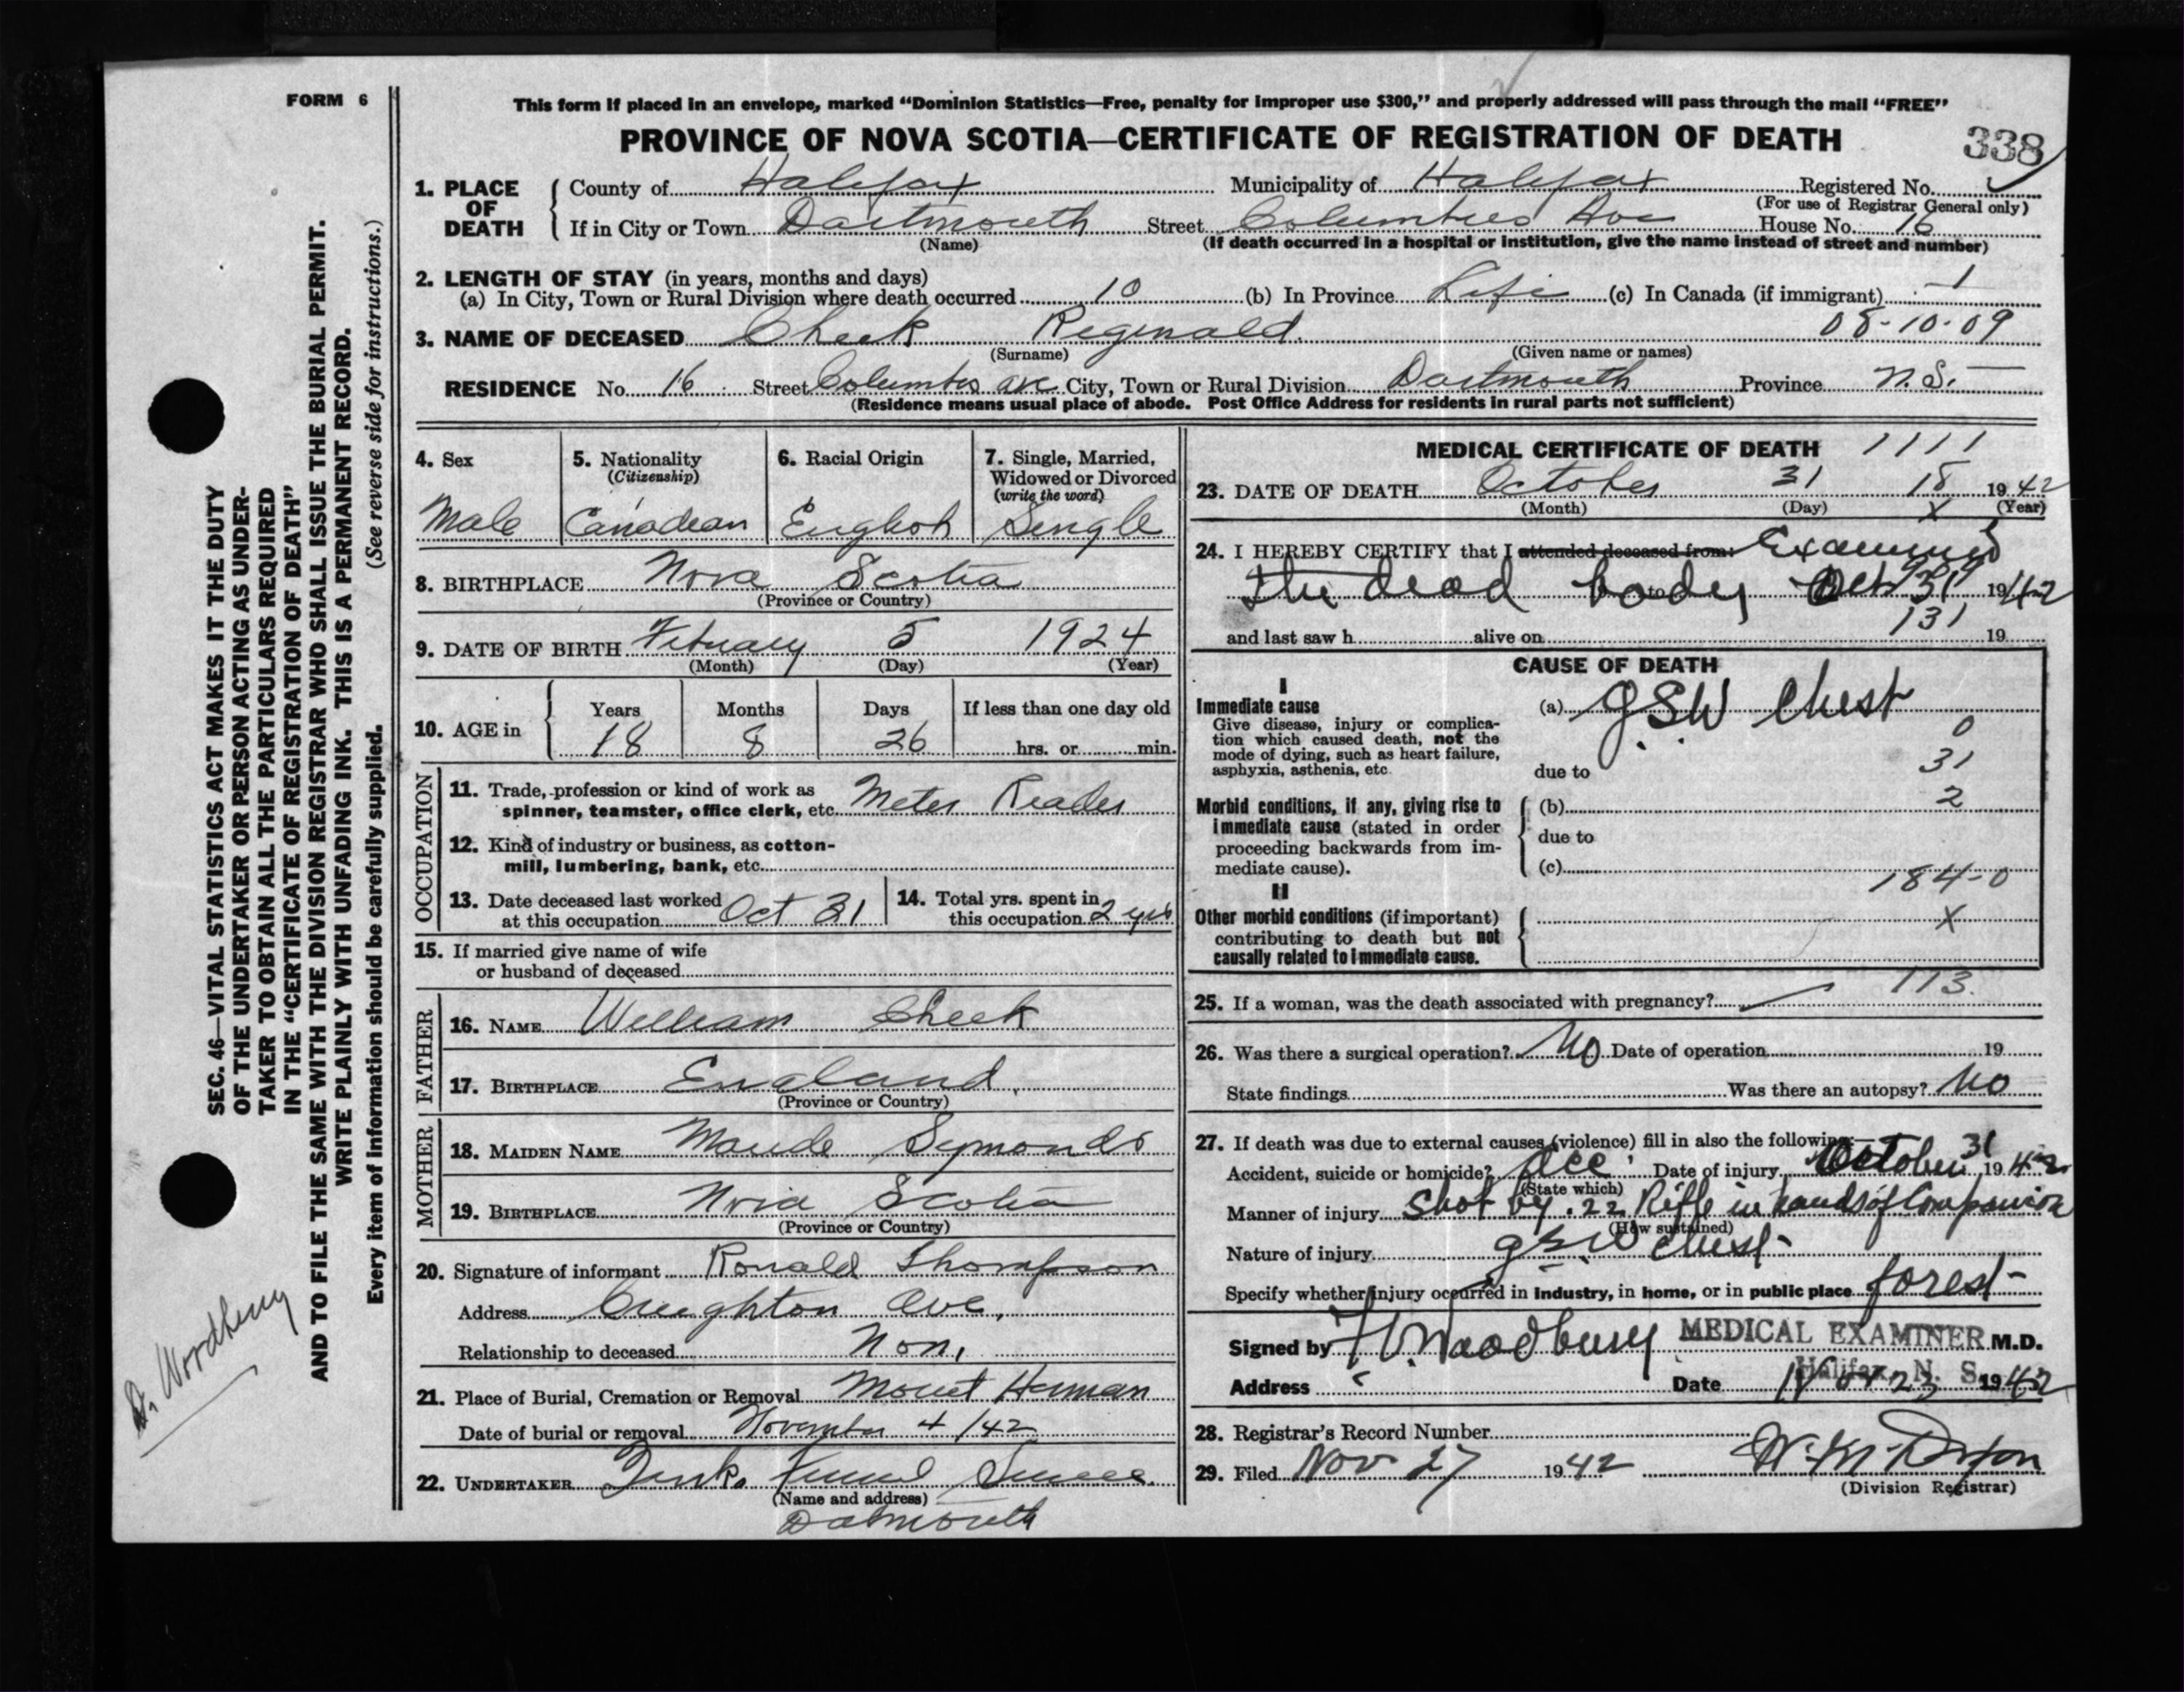 FORM 6
This form if placed in an envelope, marked “Dominion Statistics—Free, penalty for improper use $300,” and properly addressed will pass through the mail “FREE”
PROVINCE OF NOVA SCOTIA—CERTIFICATE OF REGISTRATION OF DEATH
338
1. PLACE OF DEATH { County of Halifax Municipality of Halifax Registered No.
(For use of Registrar General only)
If in City or Town Dartmouth Street Columbus Ave House No. 16
(Name) (If death occurred in a hospital or institution, give the name instead of street and number)
2. LENGTH OF STAY (in years, months and days)
(a) In City, Town or Rural Division where death occurred 10 (b) In Province Life (c) In Canada (if immigrant) 1
3. NAME OF DECEASED Cheek Reginald. 08-10-09
(Surname) (Given name or names)
RESIDENCE No. 16 Street Columbus ave City, Town or Rural Division Dartmouth Province N.S.
(Residence means usual place of abode. Post Office Address for residents in rural parts not sufficient)
4. Sex
Male
5. Nationality
(Citizenship)
Canadian
6. Racial Origin
English
7. Single, Married, Widowed or Divorced
(write the word)
Single
8. BIRTHPLACE Nova Scotia
(Province or Country)
9. DATE OF BIRTH Febuary 5 1924
(Month) (Day) (Year)
10. AGE in { Years Months Days If less than one day old
18 8 26 hrs. or min.
OCCUPATION
11. Trade, profession or kind of work as
spinner, teamster, office clerk, etc. Meter Reader
12. Kind of industry or business, as cotton-
mill, lumbering, bank, etc.
13. Date deceased last worked
at this occupation Oct 31
14. Total yrs. spent in
this occupation 2 yrs
15. If married give name of wife
or husband of deceased
FATHER
16. NAME William Cheek
17. BIRTHPLACE England
(Province or Country)
MOTHER
18. MAIDEN NAME Maude Symonds
19. BIRTHPLACE Nova Scotia
(Province or Country)
20. Signature of informant Ronald Thompson
Address Creighton Ave,
Relationship to deceased Non,
21. Place of Burial, Cremation or Removal Mount Herman
Date of burial or removal November 4/42
22. UNDERTAKER
(Name and address)
Datmouth
MEDICAL CERTIFICATE OF DEATH 1111
23. DATE OF DEATH October 31 18 1942
(Month) (Day) X (Year)
24. I HEREBY CERTIFY that I attended deceased from: Examined
the dead body to Oct 31 1942
131
and last saw h alive on 19
CAUSE OF DEATH
I
Immediate cause
Give disease, injury or complica-
tion which caused death, not the
mode of dying, such as heart failure,
asphyxia, asthenia, etc.
(a) GSW Chest
0
due to 31
Morbid conditions, if any, giving rise to
immediate cause (stated in order
proceeding backwards from im-
mediate cause).
(b) 2
due to
(c)
184-0
II
Other morbid conditions (if important)
contributing to death but not
causally related to immediate cause.
X
113.
25. If a woman, was the death associated with pregnancy?
26. Was there a surgical operation? No Date of operation 19
State findings Was there an autopsy? No
27. If death was due to external causes (violence) fill in also the following:—
Accident, suicide or homicide? Acc. Date of injury October 31 1942
(State which)
Manner of injury Shot by .22 Rifle in hands of Companion
(How sustained)
Nature of injury GSW chest
Specify whether injury occurred in industry, in home, or in public place forest
Signed by Woodbury MEDICAL EXAMINER M.D.
Halifax, N. S.
Address Date Nov 23 1942
28. Registrar's Record Number
29. Filed Nov 27 1942
(Division Registrar)
SEC. 46—VITAL STATISTICS ACT MAKES IT THE DUTY
OF THE UNDERTAKER OR PERSON ACTING AS UNDER-
TAKER TO OBTAIN ALL THE PARTICULARS REQUIRED
IN THE “CERTIFICATE OF REGISTRATION OF DEATH”
AND TO FILE THE SAME WITH THE DIVISION REGISTRAR WHO SHALL ISSUE THE BURIAL PERMIT.
WRITE PLAINLY WITH UNFADING INK. THIS IS A PERMANENT RECORD.
Every item of information should be carefully supplied. (See reverse side for instructions.)
Dr. Woodbury